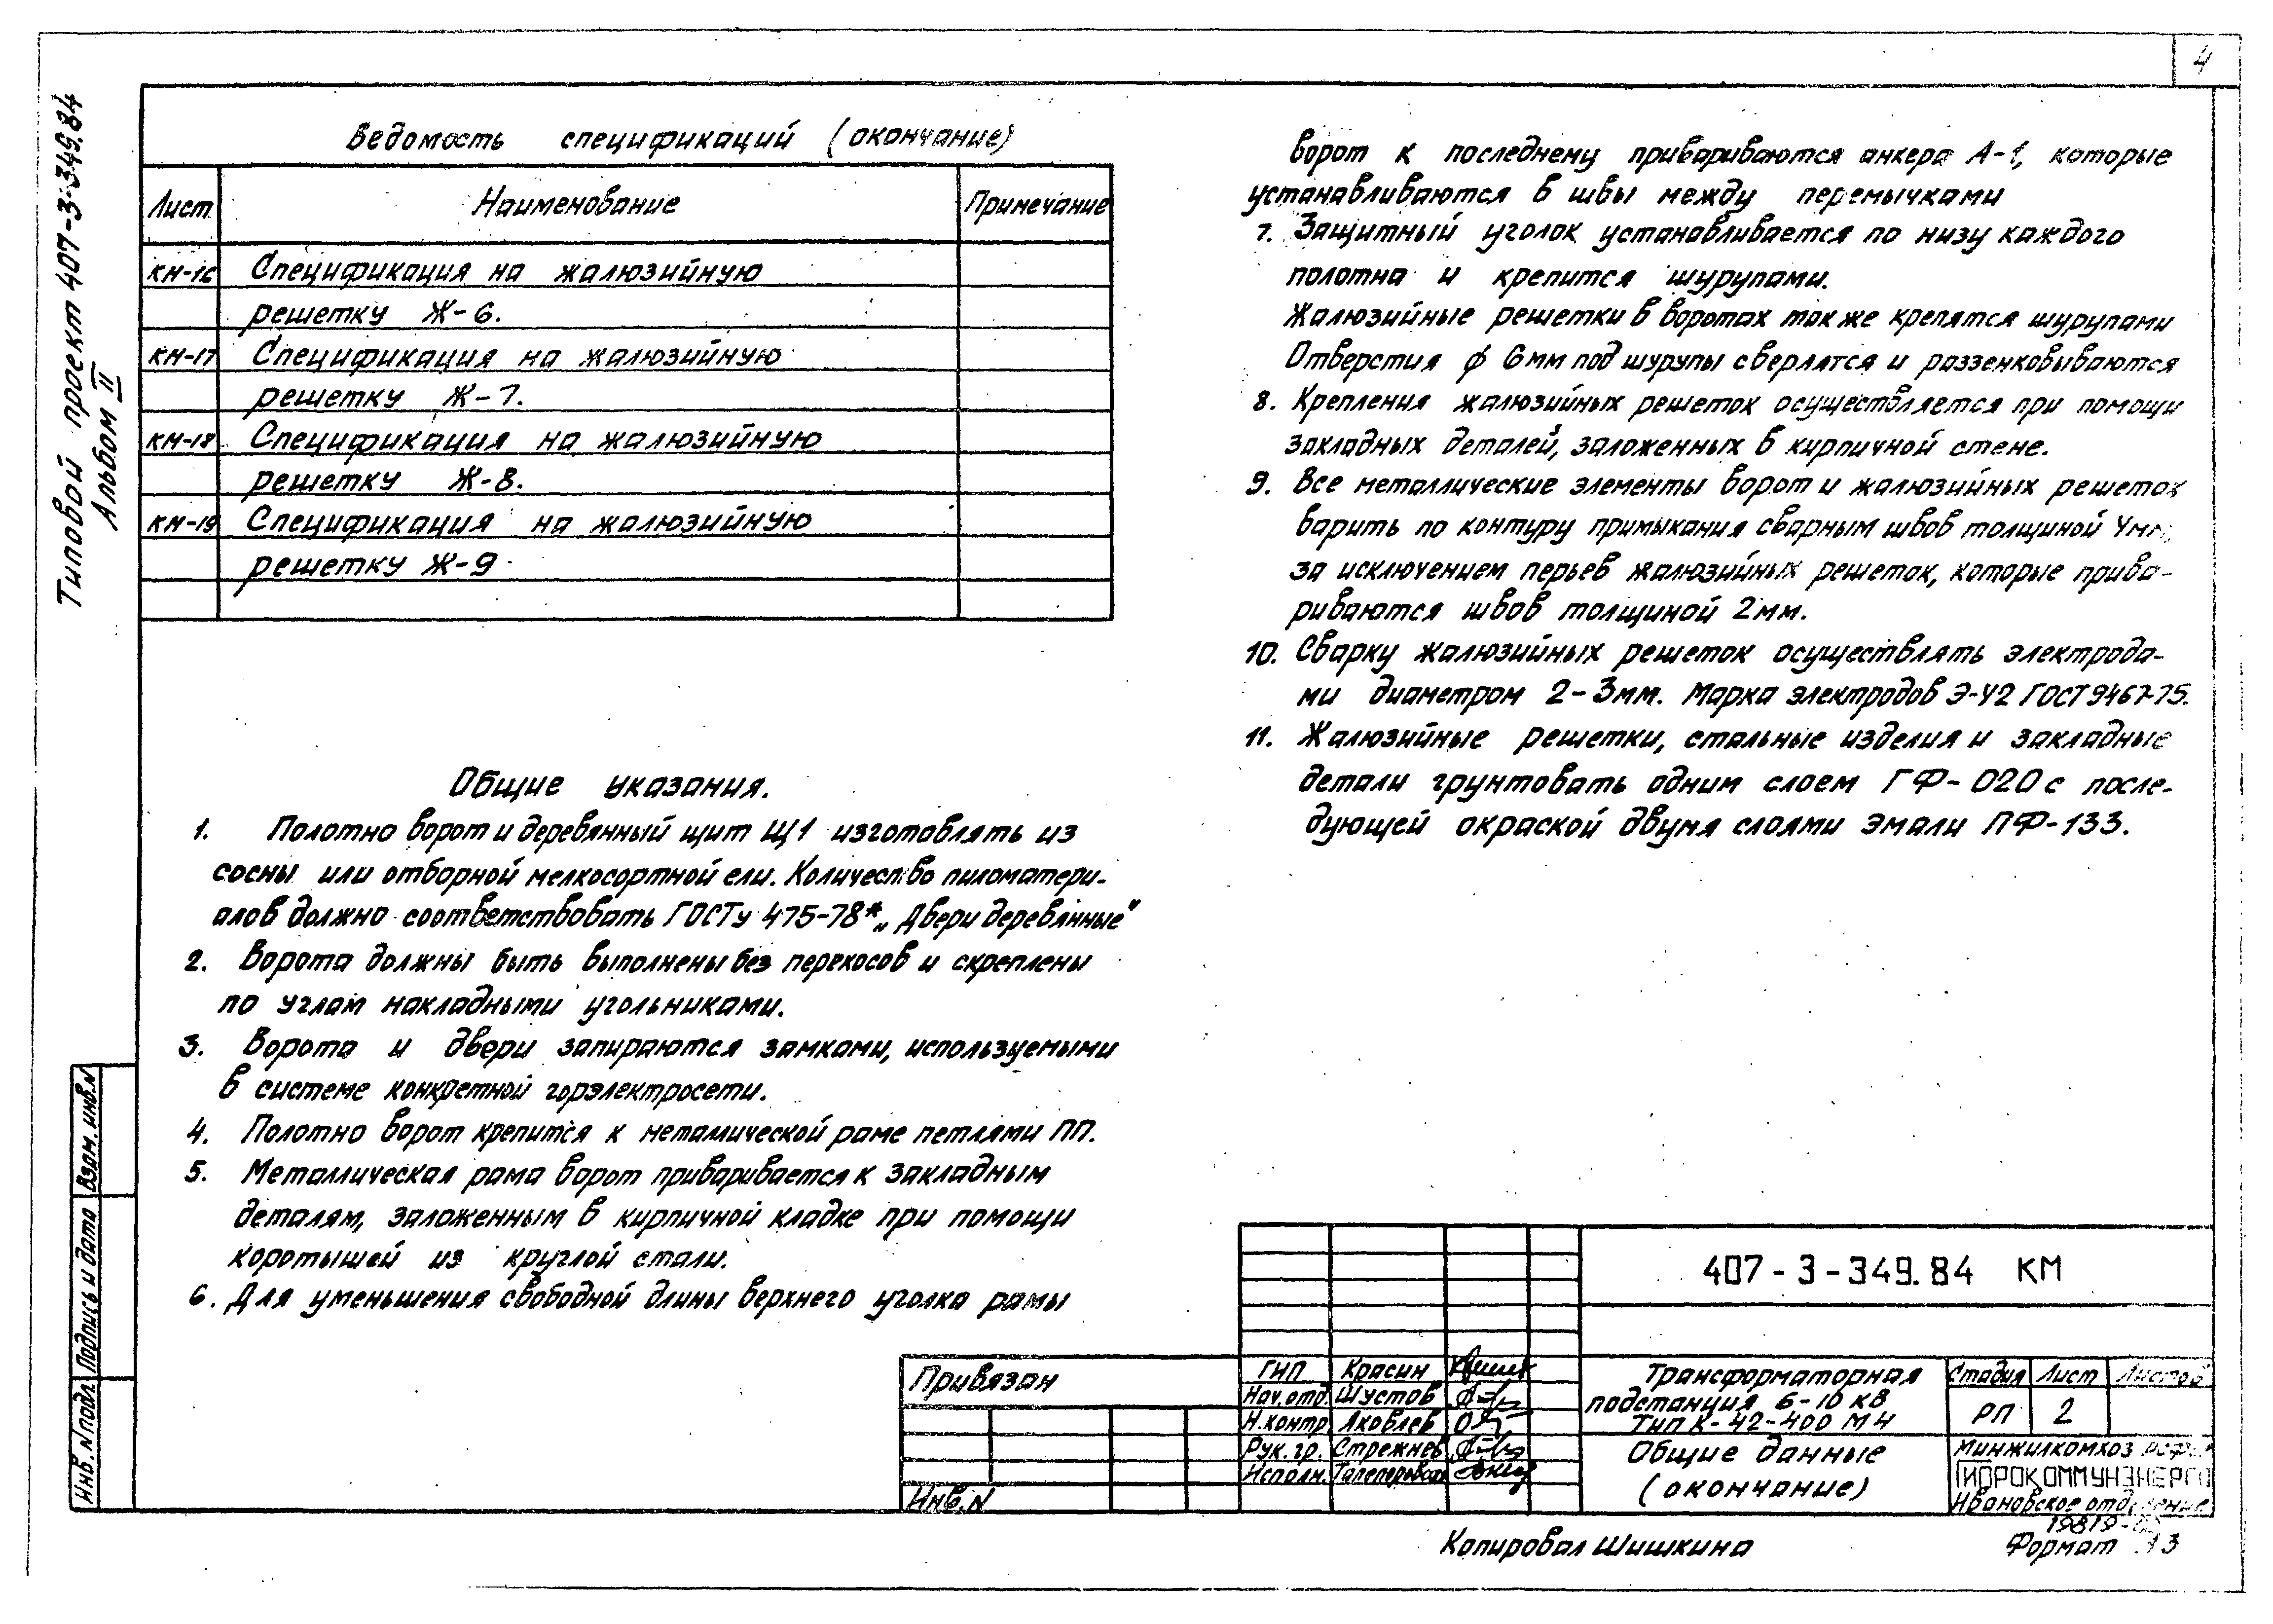 4
Типовой проект 407-3-349.84
Альбом II
Ведомость спецификаций (окончание)
Лист Наименование Примечание
КМ-16 Спецификация на жалюзийную
решетку Ж-6.
КМ-17 Спецификация на жалюзийную
решетку Ж-7.
КМ-18 Спецификация на жалюзийную
решетку Ж-8.
КМ-19 Спецификация на жалюзийную
решетку Ж-9
Общие указания.
1. Полотно ворот и деревянный щит Щ1 изготовлять из
сосны или отборной мелкосортной ели. Количество пиломатери-
алов должно соответствовать ГОСТу 475-78* „Двери деревянные"
2. Ворота должны быть выполнены без перекосов и скреплены
по углам накладными угольниками.
3. Ворота и двери запираются замками, используемыми
в системе конкретной горэлектросети.
4. Полотно ворот крепится к металлической раме петлями ПП.
5. Металлическая рама ворот приваривается к закладным
деталям, заложенным в кирпичной кладке при помощи
коротышей из круглой стали.
6. Для уменьшения свободной длины верхнего уголка рамы
ворот к последнему привариваются анкера А-1, которые
устанавливаются в швы между перемычками
7. Защитный уголок устанавливается по низу каждого
полотна и крепится шурупами.
Жалюзийные решетки в воротах также крепятся шурупами
Отверстия ф 6мм под шурупы сверлятся и раззенковываются
8. Крепления жалюзийных решеток осуществляется при помощи
закладных деталей, заложенных в кирпичной стене.
9. Все металлические элементы ворот и жалюзийных решеток
варить по контуру примыкания сварным швов толщиной 4мм,
за исключением перьев жалюзийных решеток, которые прива-
риваются швов толщиной 2мм.
10. Сварку жалюзийных решеток осуществлять электрода-
ми диаметром 2-3мм. Марка электродов Э-42 ГОСТ 9467-75.
11. Жалюзийные решетки, стальные изделия и закладные
детали грунтовать одним слоем ГФ-020 с после-
дующей окраской двумя слоями эмали ПФ-133.
Взам. инв.N
Подпись и дата
Инв. N подл.
Привязан
Инв.N
407-3-349.84 КМ
ГИП Красин
Нач.отд. Шустов
Н.контр Яковлев
Рук.гр. Стрежнев
Исполн.
Трансформаторная
подстанция 6-10 кВ
тип К-42-400 М4
Стадия Лист Листов
РП 2
Общие данные
(окончание)
Минжилкомхоз РСФСР
ГИПРОКОММУНЭНЕРГО
Ивановское отделение
Копировал Шишкина
Формат